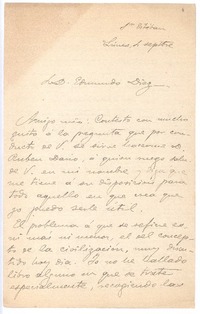 Sr. D. Edmundo Díaz
Amigo mío: Contesto con mucho
gusto á la pregunta que por con-
ducto de V. se sirve hacerme D.
Ruben Darío, á quien ruego salu-
de V. en mi nombre y que
me tiene á su disposición para
todo aquello en que crea que
yo puedo serle útil.
El problema á que se refiere es,
ni más ni menos, el del concep-
to de la civilización, muy discu-
tido hoy día. Yo no he hallado
libro alguno en que se trate
especialmente, recogiendo las